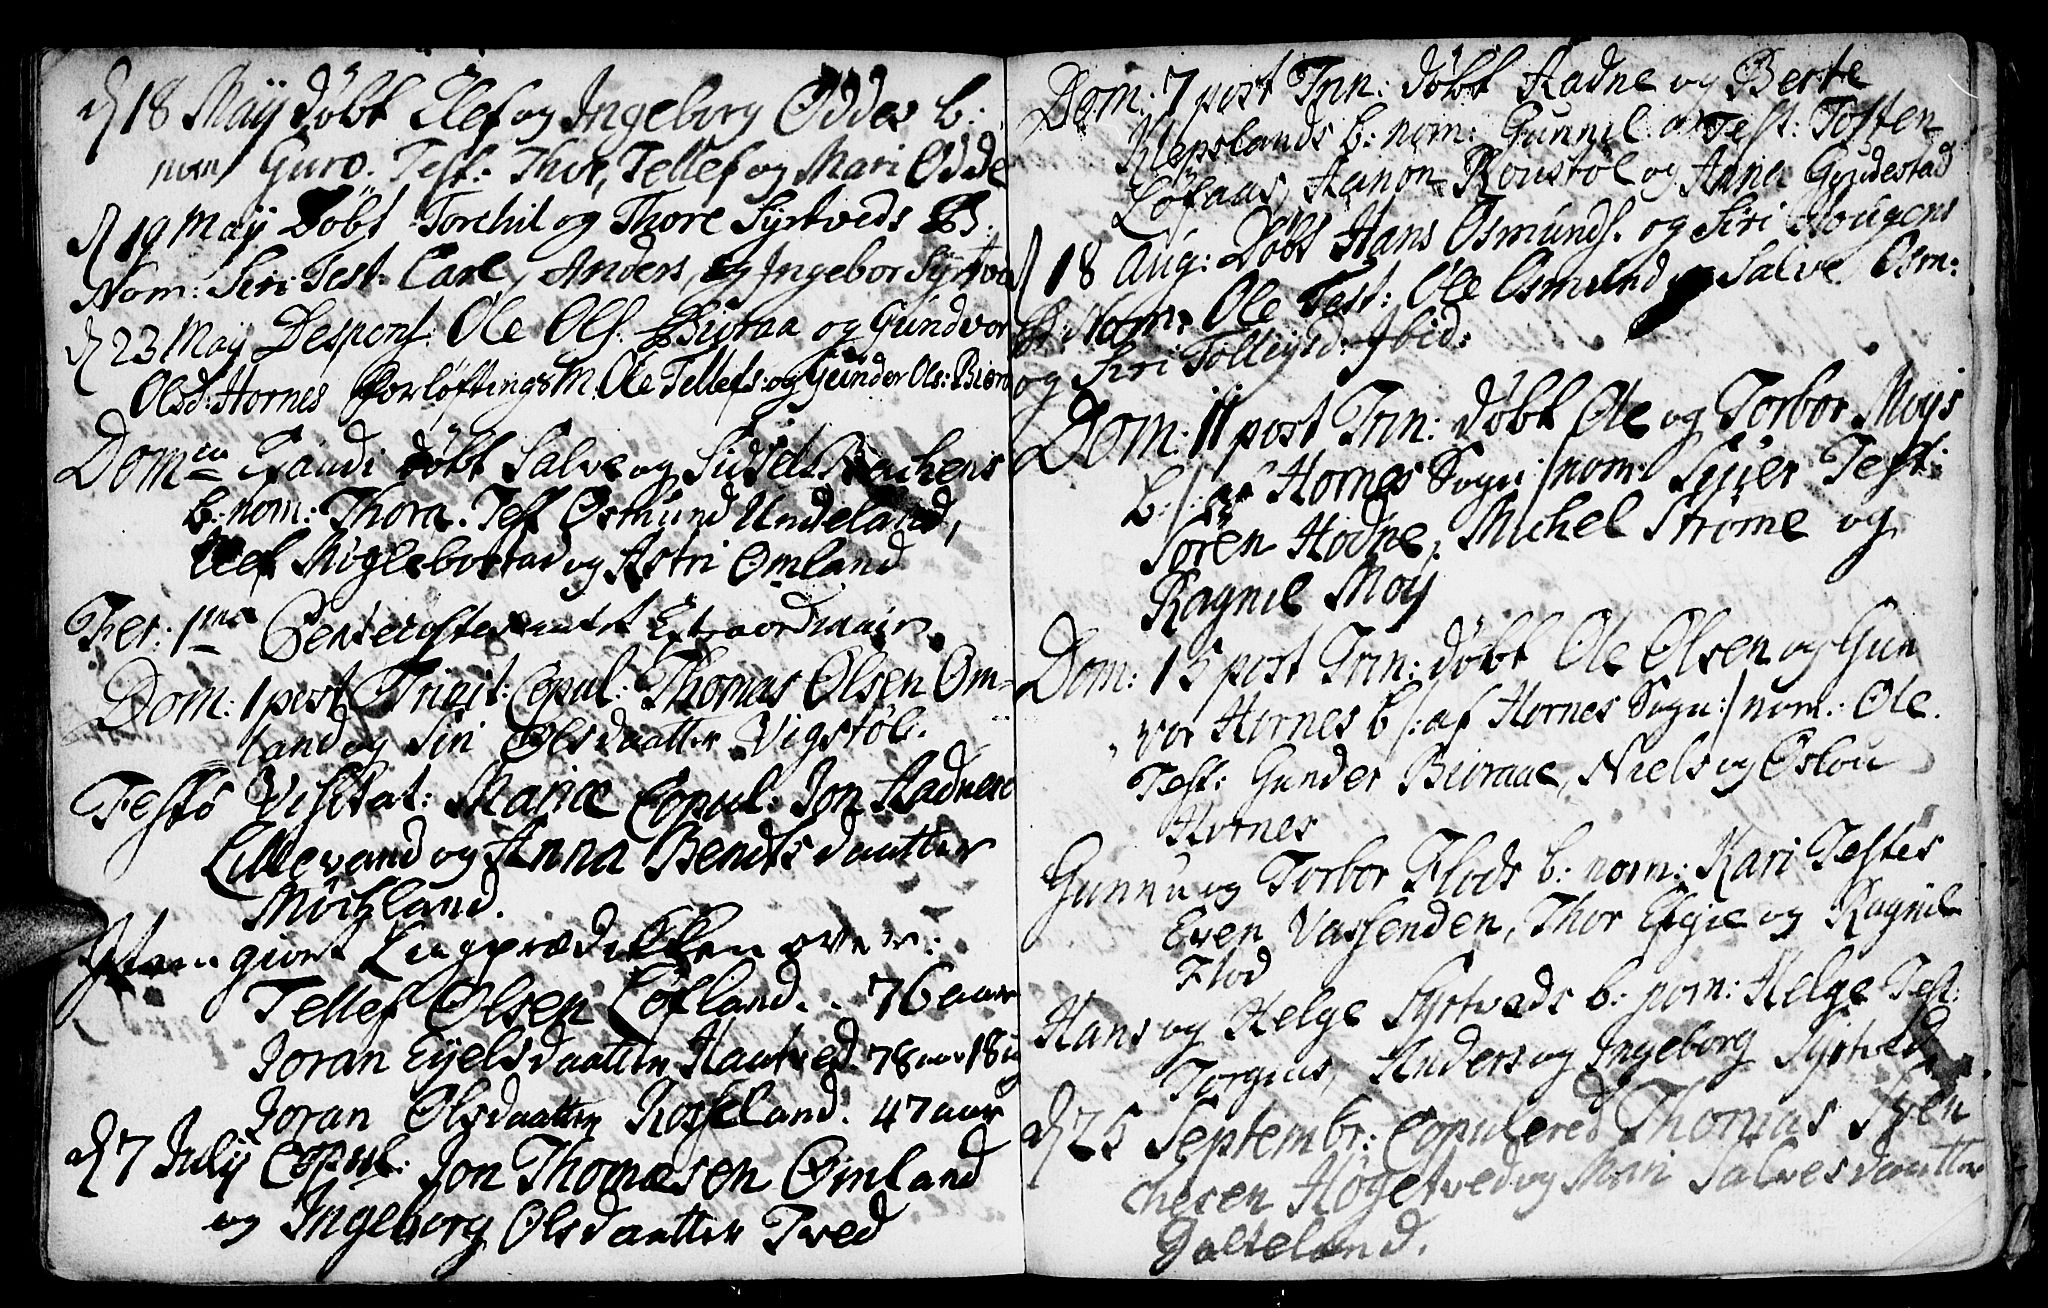 d 18 Maÿ døbt Elef og Ingeborg Oddes b:
nom Guro. Test: Thor, Tellef og Mari Odde
d 19 Maÿ Døbt Torchil og Thore Syrtveds B:
Nom: Siri Test: Carl, Anders, og Ingebor Syrtve
d 23 Maÿ Despons: Ole Ols: Biuraa og Gundvor
Olsd: Hornes Forløftings M. Ole Tellefs: og Gunder Ols: Biura
Dom: Exaudi døbt Salve og Sidsel
b: nom: Thora. Test Osmund Undeland,
Ellef Møglebostad og Astri Omland
Fer: 1ma Pentecostes Extraordinair.
Dom: 1 post Trinit: Copul: Thomas Olsen Om-
land og Siri Olsdaatter Vigstøl.
Festo Visitat: Mariæ Copul: Jon Aadnesen
Lillevand og Anna Bendtsdaatter
Møchland.
giort Liigprædikken over:
Tellef Olsen Løfland.. 76 aar
Joran Eyelsdaatter Hautved. 78 aar 18 ug
Joran Olsdaatter Rosseland. 47 aar
d 7 July Copul: Jon Thomæsen Omland
og Ingeborg Olsdaatter Tved
Dom: 7 post Trin: døbt Aadne og Berte
Klepslands b: nom: Gunnil Test: Tosten
Løfaas, Aanon Roustøl og Anna Gyudestad
d 18 Aug: Døbt Hans Osmunds: og Siri Hougens
B: Nom: Ole Test: Ole Osmund Salve Osm:
og Siri Tolleysd: Ibid:
Dom: 11 post Trin: døbt Ole og Torbor Moÿs
b /: af Hornes Sogn :/ nom: Syver Test:
Søren Hodne, Michel Strøme og
Ragnil Moÿ
Dom: 15 post Trin: døbt Ole Olsen og Gun
vor Hornes b /: af Hornes Sogn :/ nom: Ole.
Test: Gunder Biuraae, Niels og Oslou
Hornes
Gunnu og Torbor Flods b: nom: Kari Testes
Even Vassenden, Thor Efgie og Ragnil
Flod
Hans og Helge Syrtveds b: nom: Helge Test:
Torgius, Anders og Ingeborg Syrtved
d 25 Septembr: Copulered Thomas Sven
chesen Høgetved og Mari Salvesdaatter
Galteland.